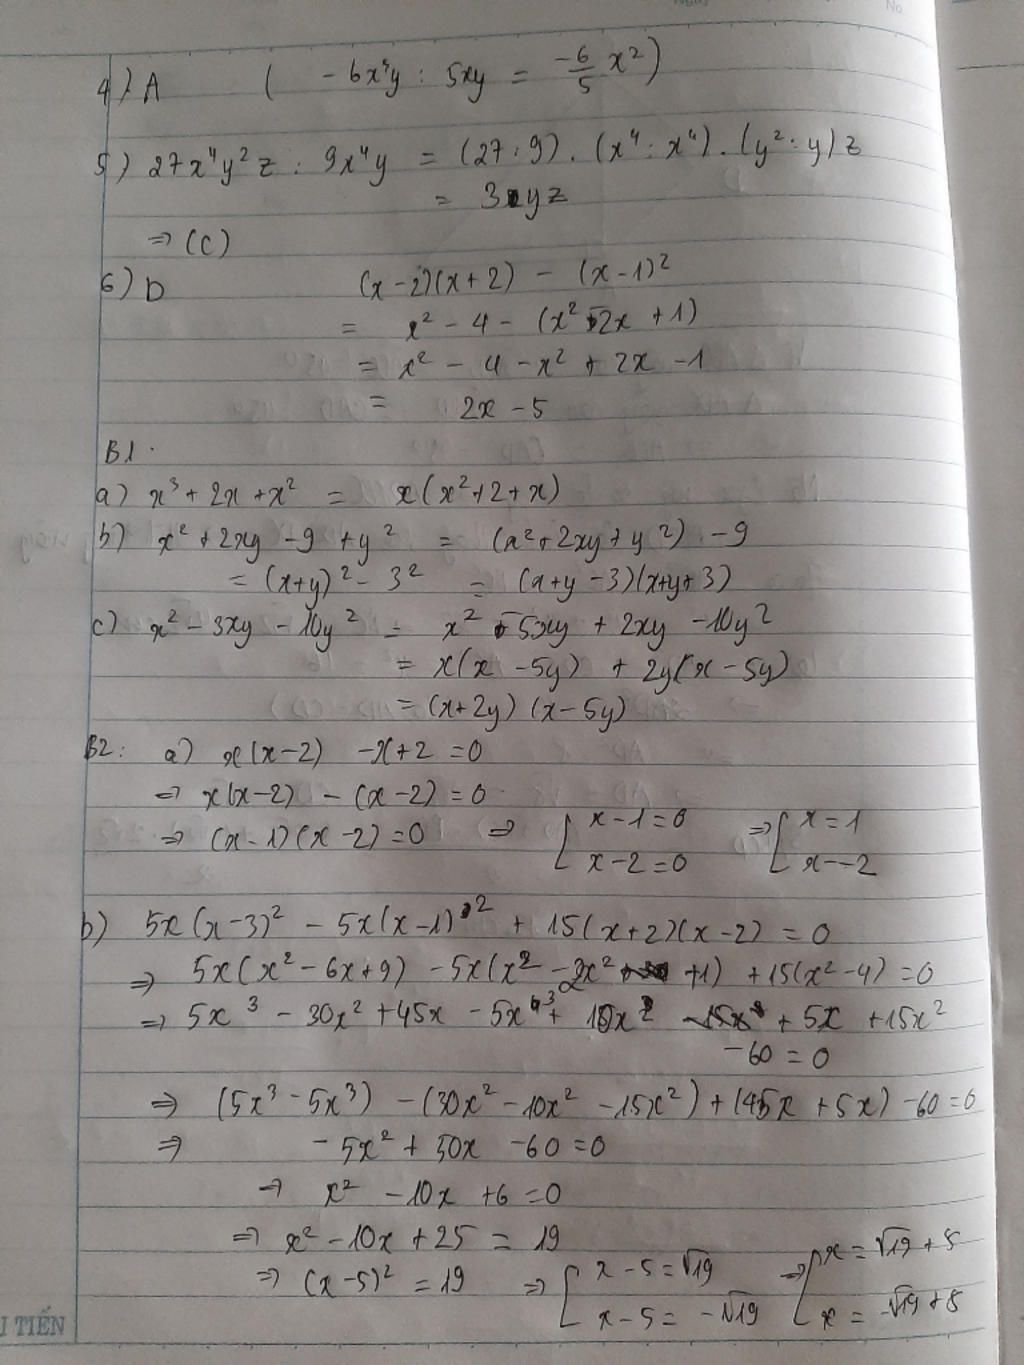 No
4) A ( - 6x³y : 5xy = -6/5 x² )
5) 27x⁴y²z : 9x⁴y = (27 : 9) . (x⁴ : x⁴) . (y² : y) z
= 3yz
⇒ (C)
6) D (x-2)(x+2) - (x-1)²
= x² - 4 - (x² - 2x + 1)
= x² - 4 - x² + 2x - 1
= 2x - 5
B1.
a) x³ + 2x + x² = x(x² + 2 + x)
b) x² + 2xy - 9 + y² = (x² + 2xy + y²) - 9
= (x+y)² - 3² = (x+y - 3)(x+y+3)
c) x² - 3xy - 10y² = x² - 5xy + 2xy - 10y²
= x(x - 5y) + 2y(x - 5y)
= (x+2y) (x-5y)
B2: a) x(x-2) -x+2 = 0
⇒ x(x-2) - (x-2) = 0
⇒ (x-1)(x-2) = 0 ⇒ [ x-1 = 0 ⇒ [ x = 1
x-2 = 0 x--2
b) 5x(x-3)² - 5x(x-1)² + 15(x+2)(x-2) = 0
⇒ 5x(x² - 6x+9) - 5x(x² - 2x² +1) + 15(x²-4) = 0
⇒ 5x³ - 30x² + 45x - 5x³ + 10x² + 5x + 15x²
-60 = 0
⇒ (5x³ - 5x³) - (30x² - 10x² - 15x²) + (45x + 5x) - 60 = 0
⇒ - 5x² + 50x - 60 = 0
⇒ x² - 10x + 6 = 0
⇒ x² - 10x + 25 = 19
⇒ (x-5)² = 19 ⇒ [ x - 5 = √19 ⇒ [ x = √19 + 5
x - 5 = -√19 x = -√19 + 5
I TIẾN